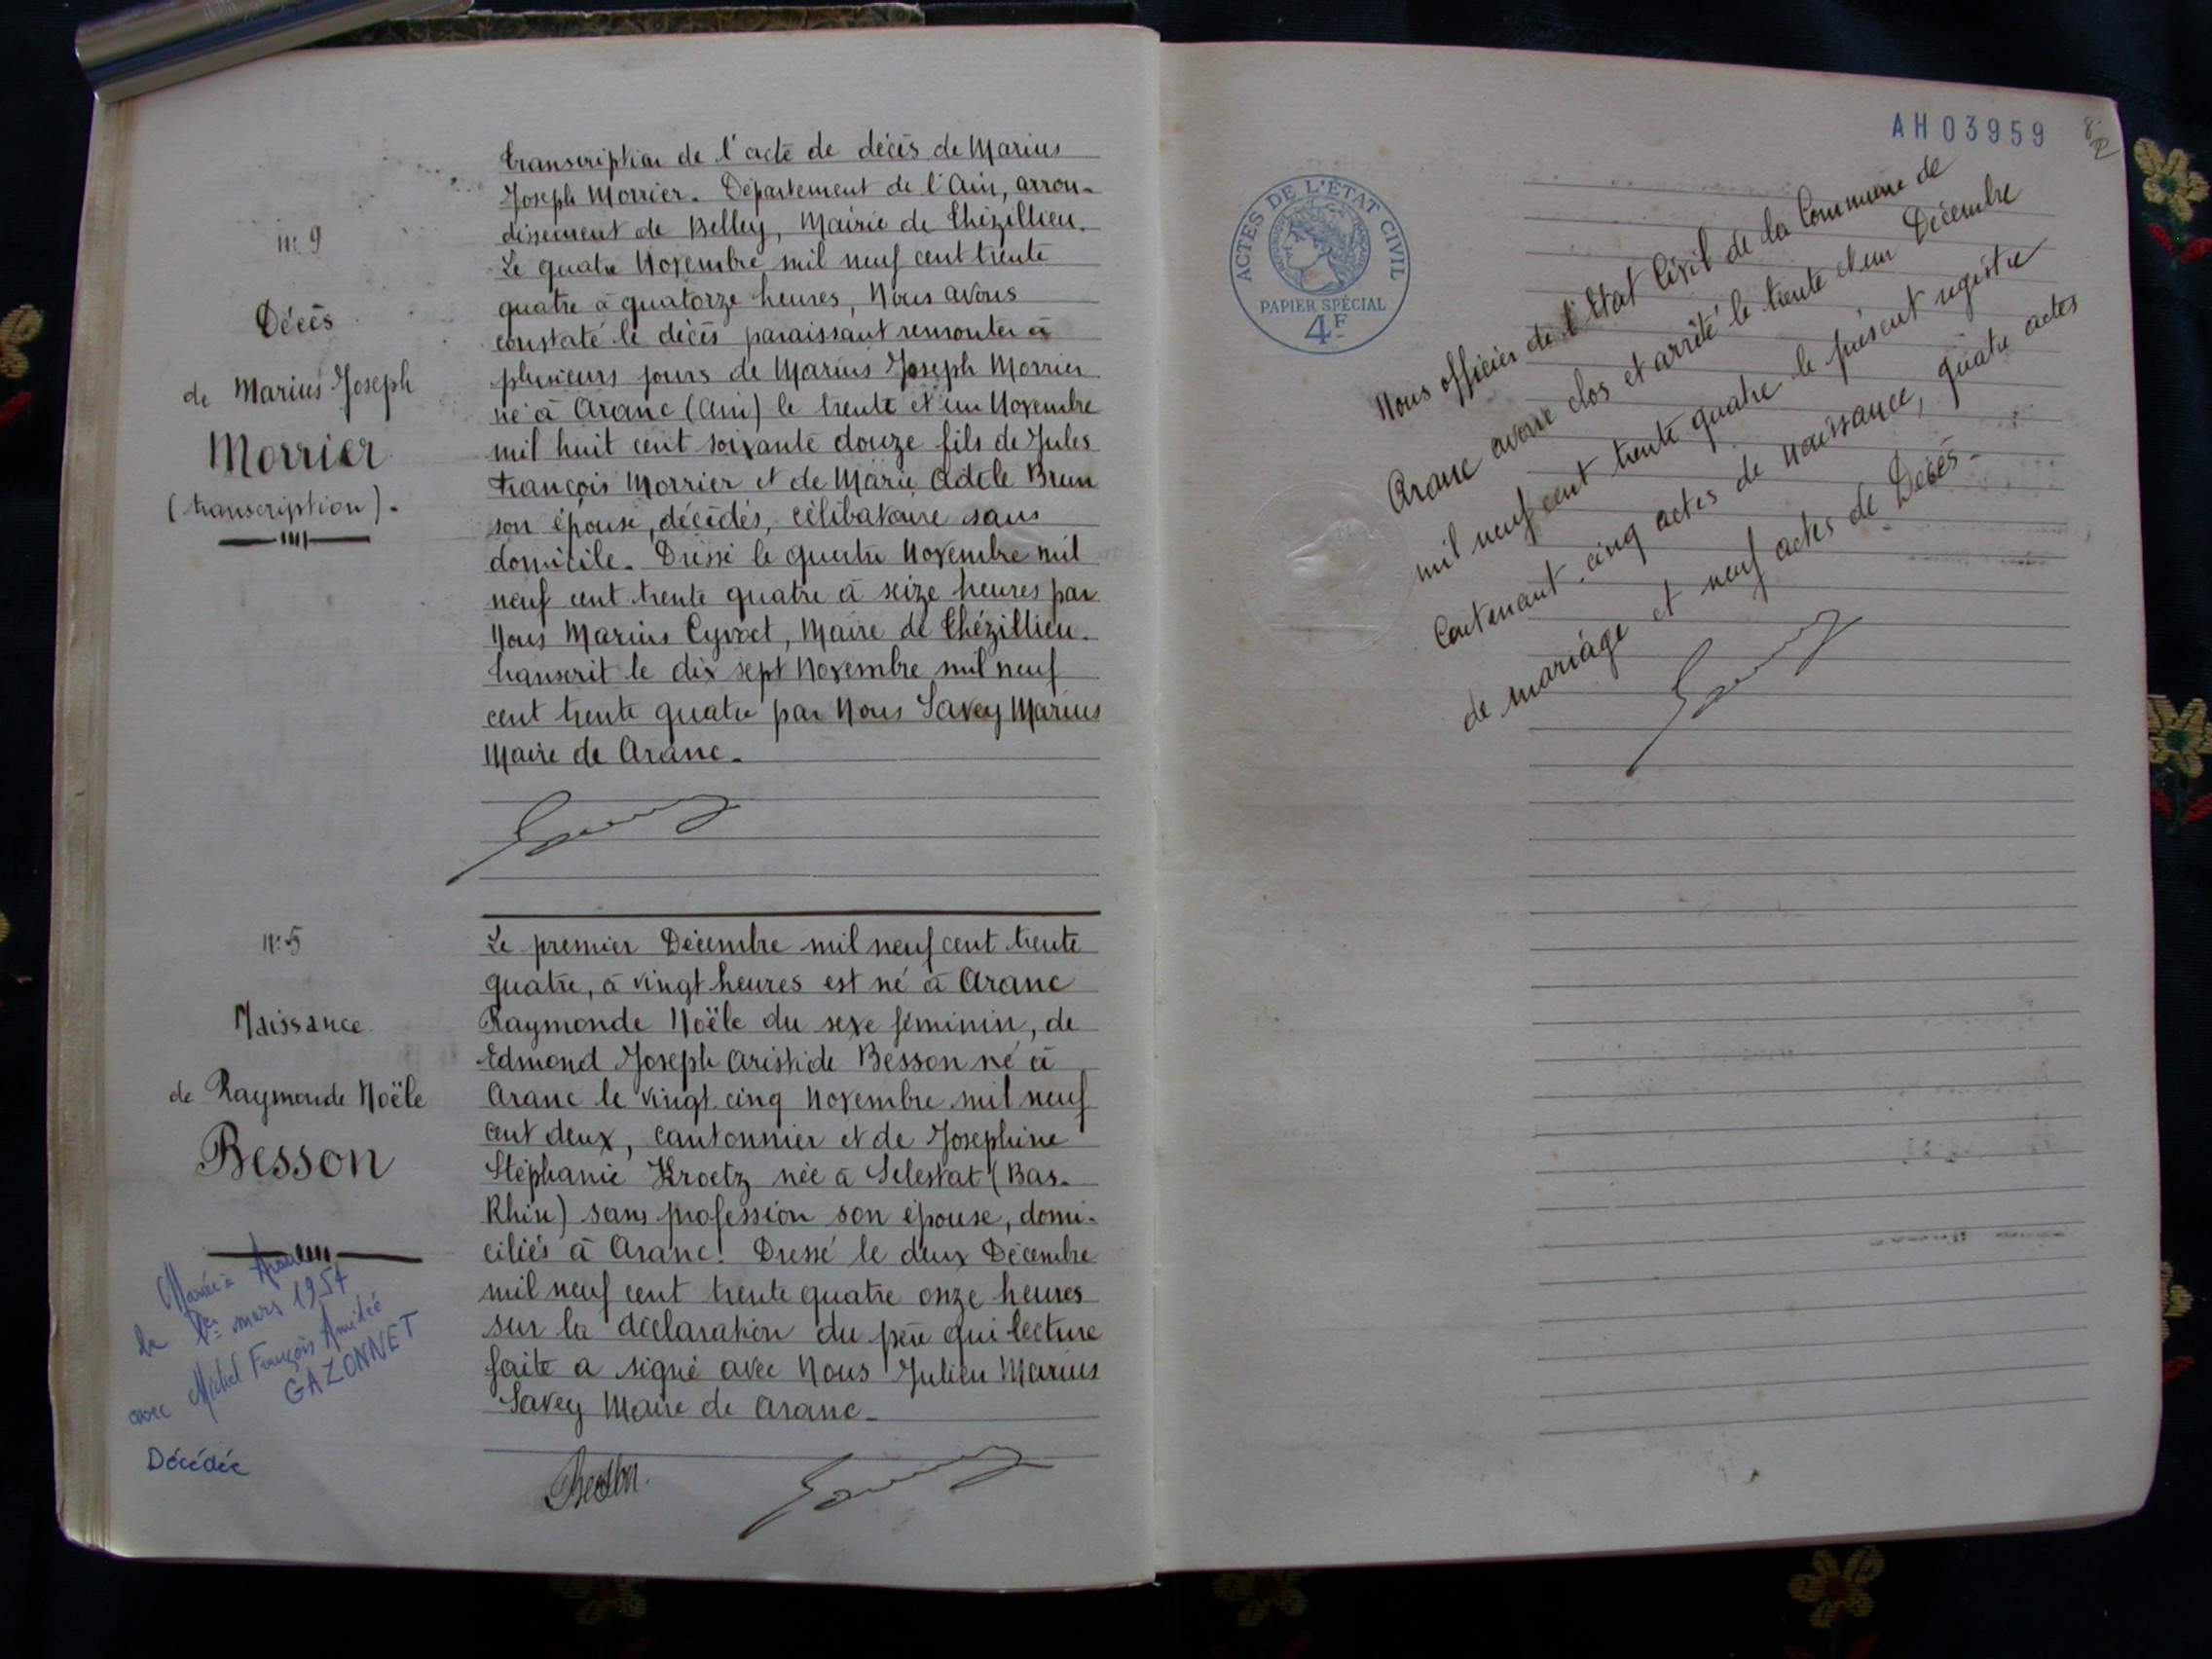 n: 9
Décès
de Marius Joseph
Morrier
(transcription).
transcription de l'acte de décès de Marius
Joseph Morrier. Département de l'Ain, arron-
dissement de Belley, Mairie de Thézillieu.
Le quatre Novembre mil neuf cent trente
quatre à quatorze heures, Nous avons
constaté le décès paraissant remonter à
plusieurs jours de Marius Joseph Morrier
né à Aranc (Ain) le trente et un Novembre
mil huit cent soixante douze fils de Jules
François Morrier et de Marie Adèle Brun
son épouse, décédés, célibataire sans
domicile. Dressé le quatre Novembre mil
neuf cent trente quatre à seize heures par
Nous Marius Cyvoct, Maire de Thézillieu.
transcrit le dix sept Novembre mil neuf
cent trente quatre par Nous Savey Marius
Maire de Aranc.
N: 5
Naissance
de Raymonde Noële
Besson
Mariée à Aranc
le 1er mars 1954
avec Michel François Amédée
GAZONNET
Décédée
Le premier Décembre mil neuf cent trente
quatre, à vingt heures est né à Aranc
Raymonde Noële du sexe féminin, de
Edmond Joseph Aristide Besson né à
Aranc le vingt cinq Novembre mil neuf
cent deux, cantonnier et de Josephine
Stéphanie Kroetz née à Selestat (Bas-
Rhin) sans profession son épouse, domi-
ciliés à Aranc. Dressé le deux Décembre
mil neuf cent trente quatre onze heures
sur la déclaration du père qui lecture
faite a signé avec Nous Julien Marius
Savey Maire de Aranc.
Besson
AH 03959
ACTES DE L'ÉTAT CIVIL
PAPIER SPÉCIAL
4F
Nous officier de l'Etat Civil de la Commune de
Aranc avons clos et arrêté le trente et un Décembre
mil neuf cent trente quatre le présent registre
Contenant cinq actes de naissance, quatre actes
de mariage et neuf actes de Décès.